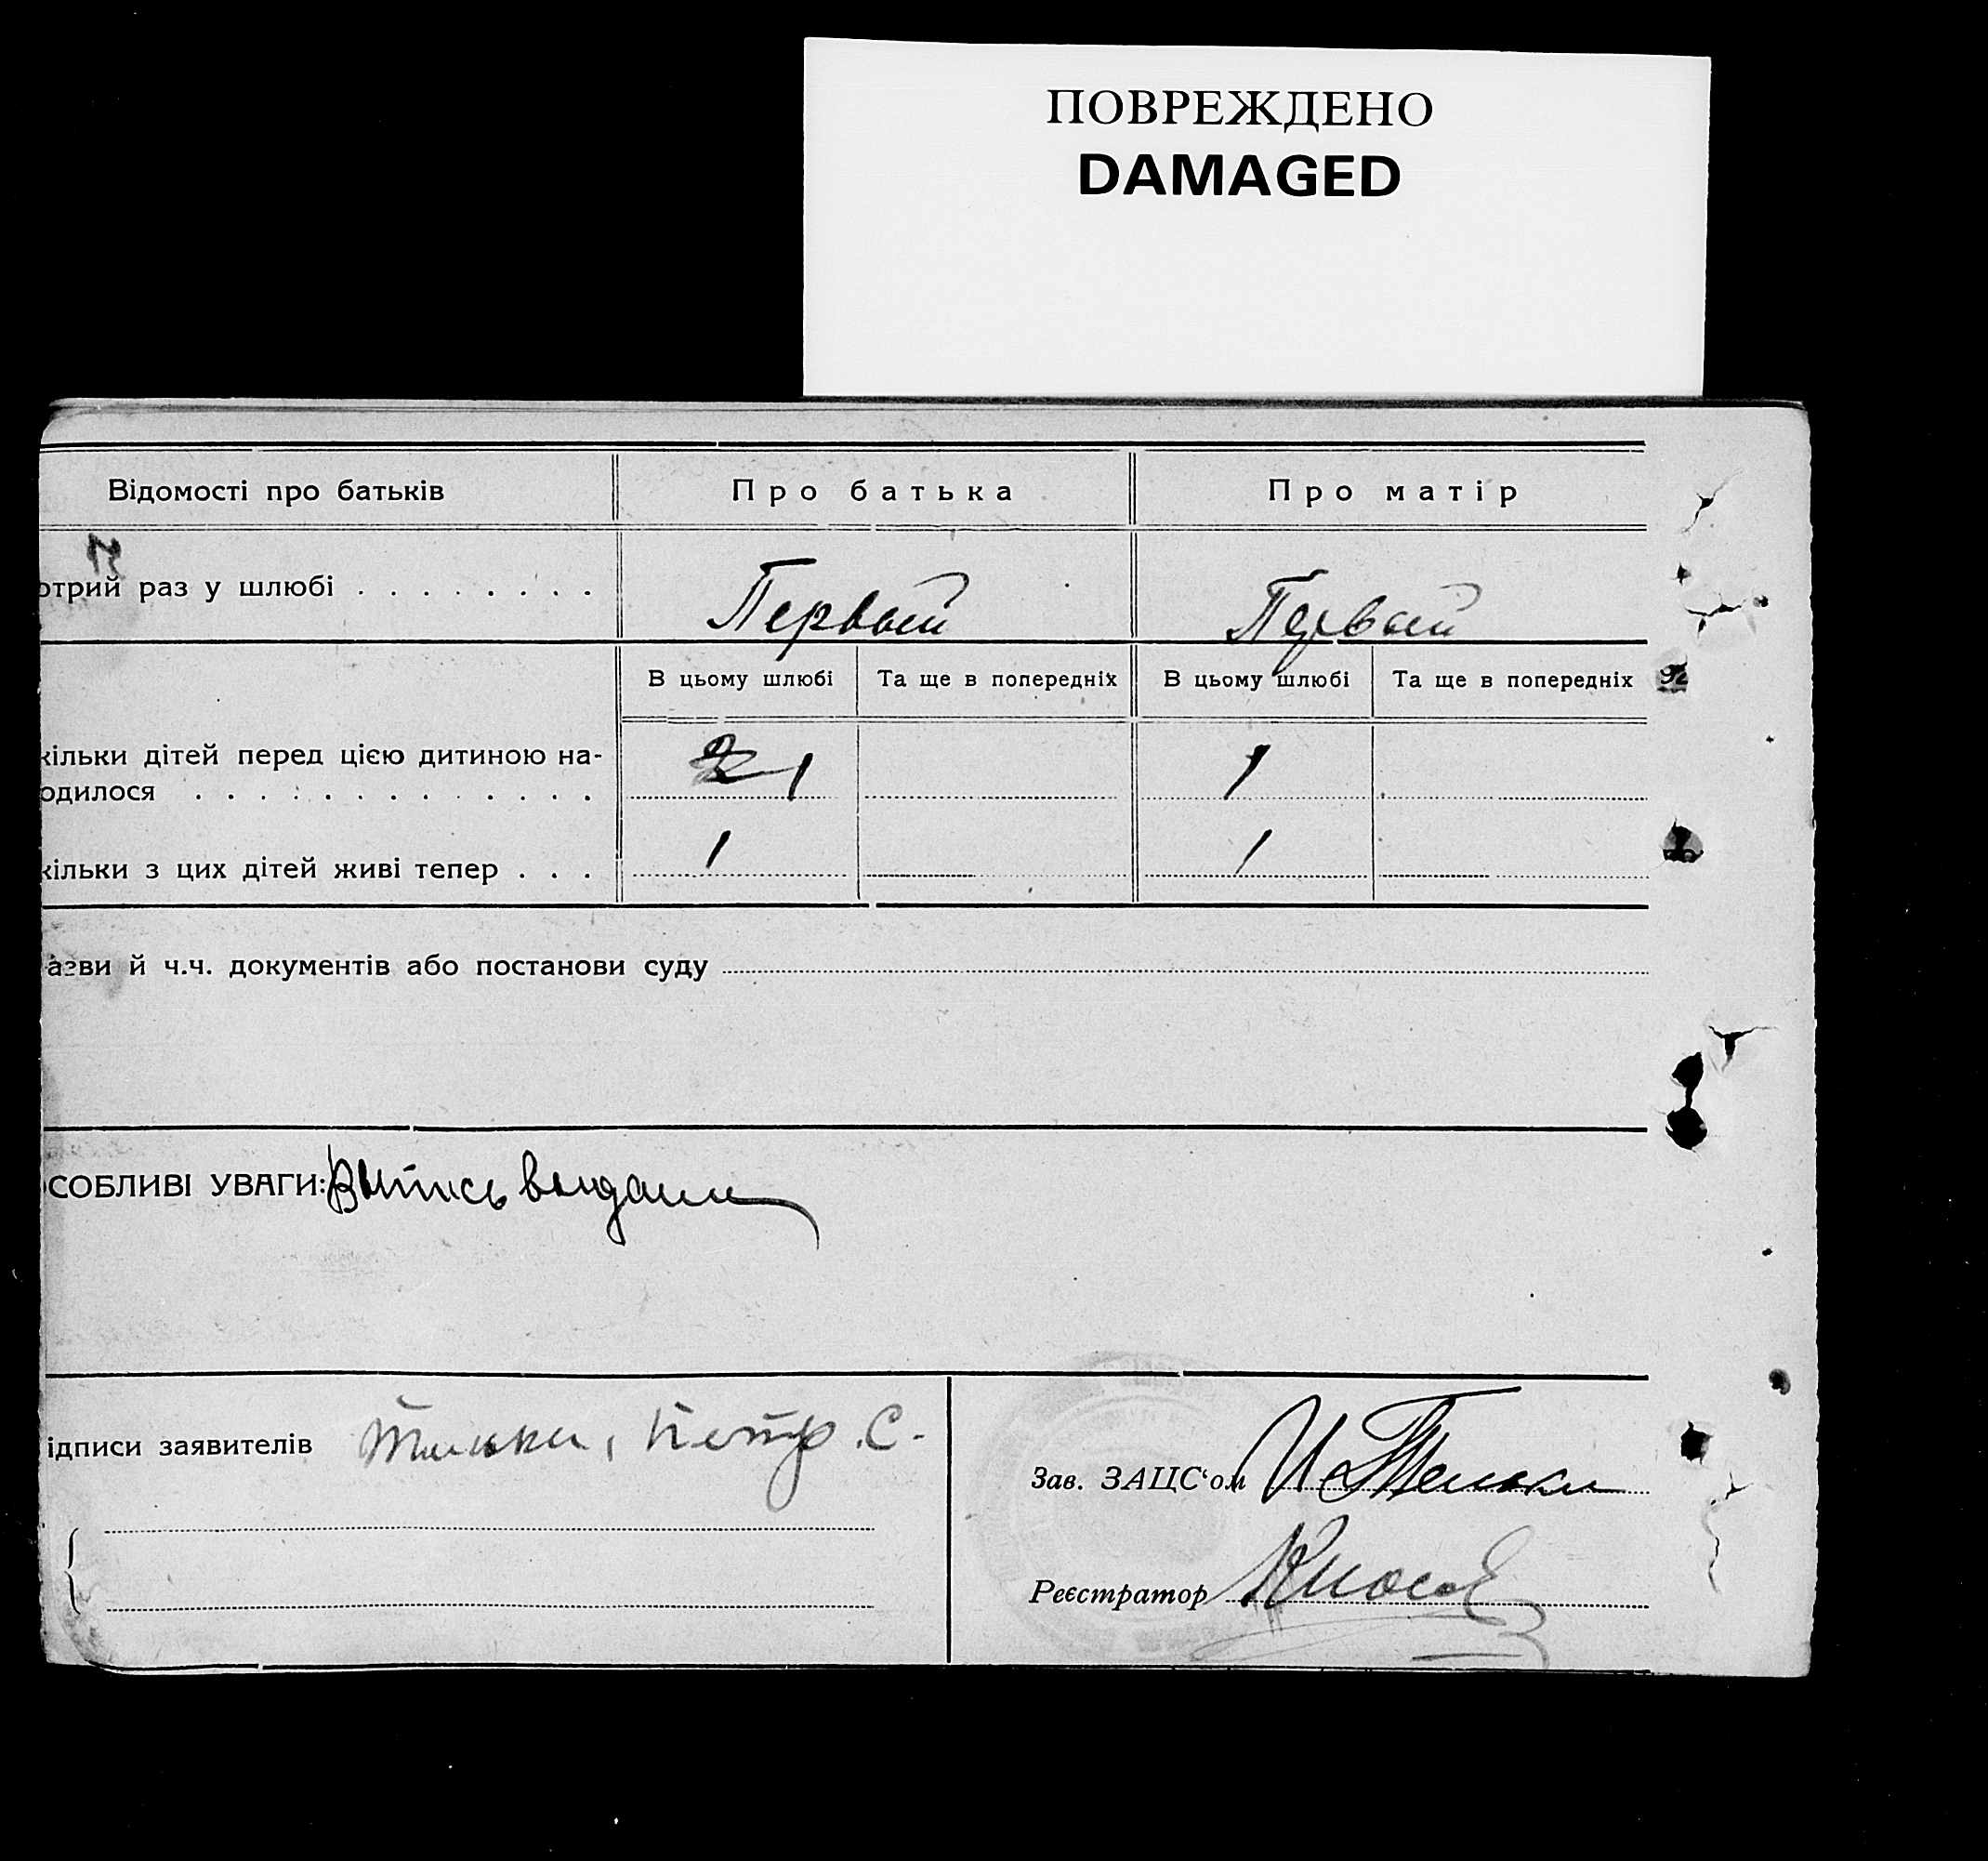 ПОВРЕЖДЕНО
DAMAGED
Відомості про батьків Про батька Про матір
отрий раз у шлюбі . . . . . . . . Первый Первый
В цьому шлюбі Та ще в попередніх В цьому шлюбі Та ще в попередніх
кільки дітей перед цією дитиною на- 1 1
одилося . . . . . . . . . . . . .
кільки з цих дітей живі тепер . . . 1 1
азви й ч.ч. документів або постанови суду
СОБЛИВІ УВАГИ: Выпись выдана
ідписи заявителів Петр С.
Зав. ЗАЦС‘ом
Реєстратор